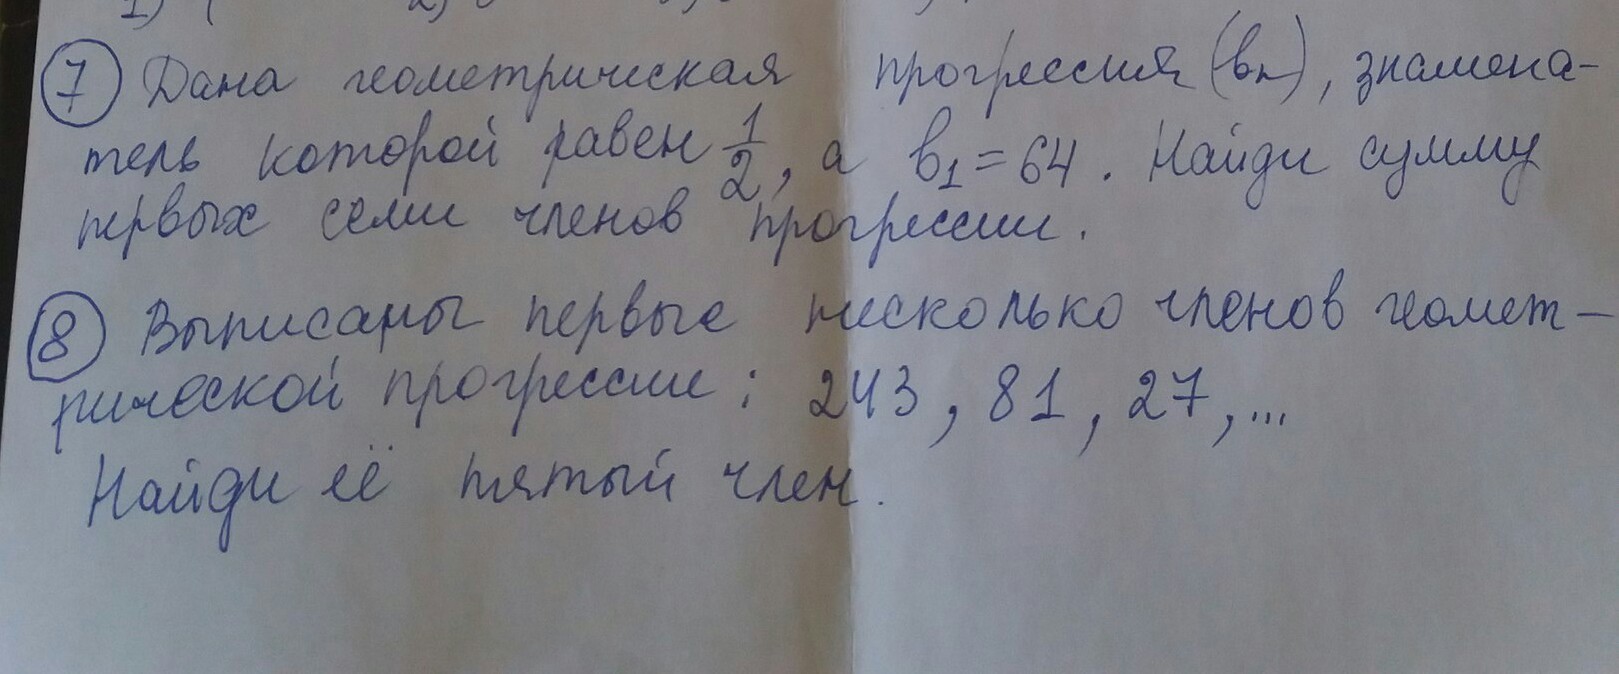 7 Дана геометрическая прогрессия (bₙ), знамена-
тель которой равен 1/2, а b₁ = 64. Найди сумму
первых семи членов прогрессии.
8 Выписаны первые несколько членов геомет-
рической прогрессии: 243, 81, 27, ...
Найди её пятый член.